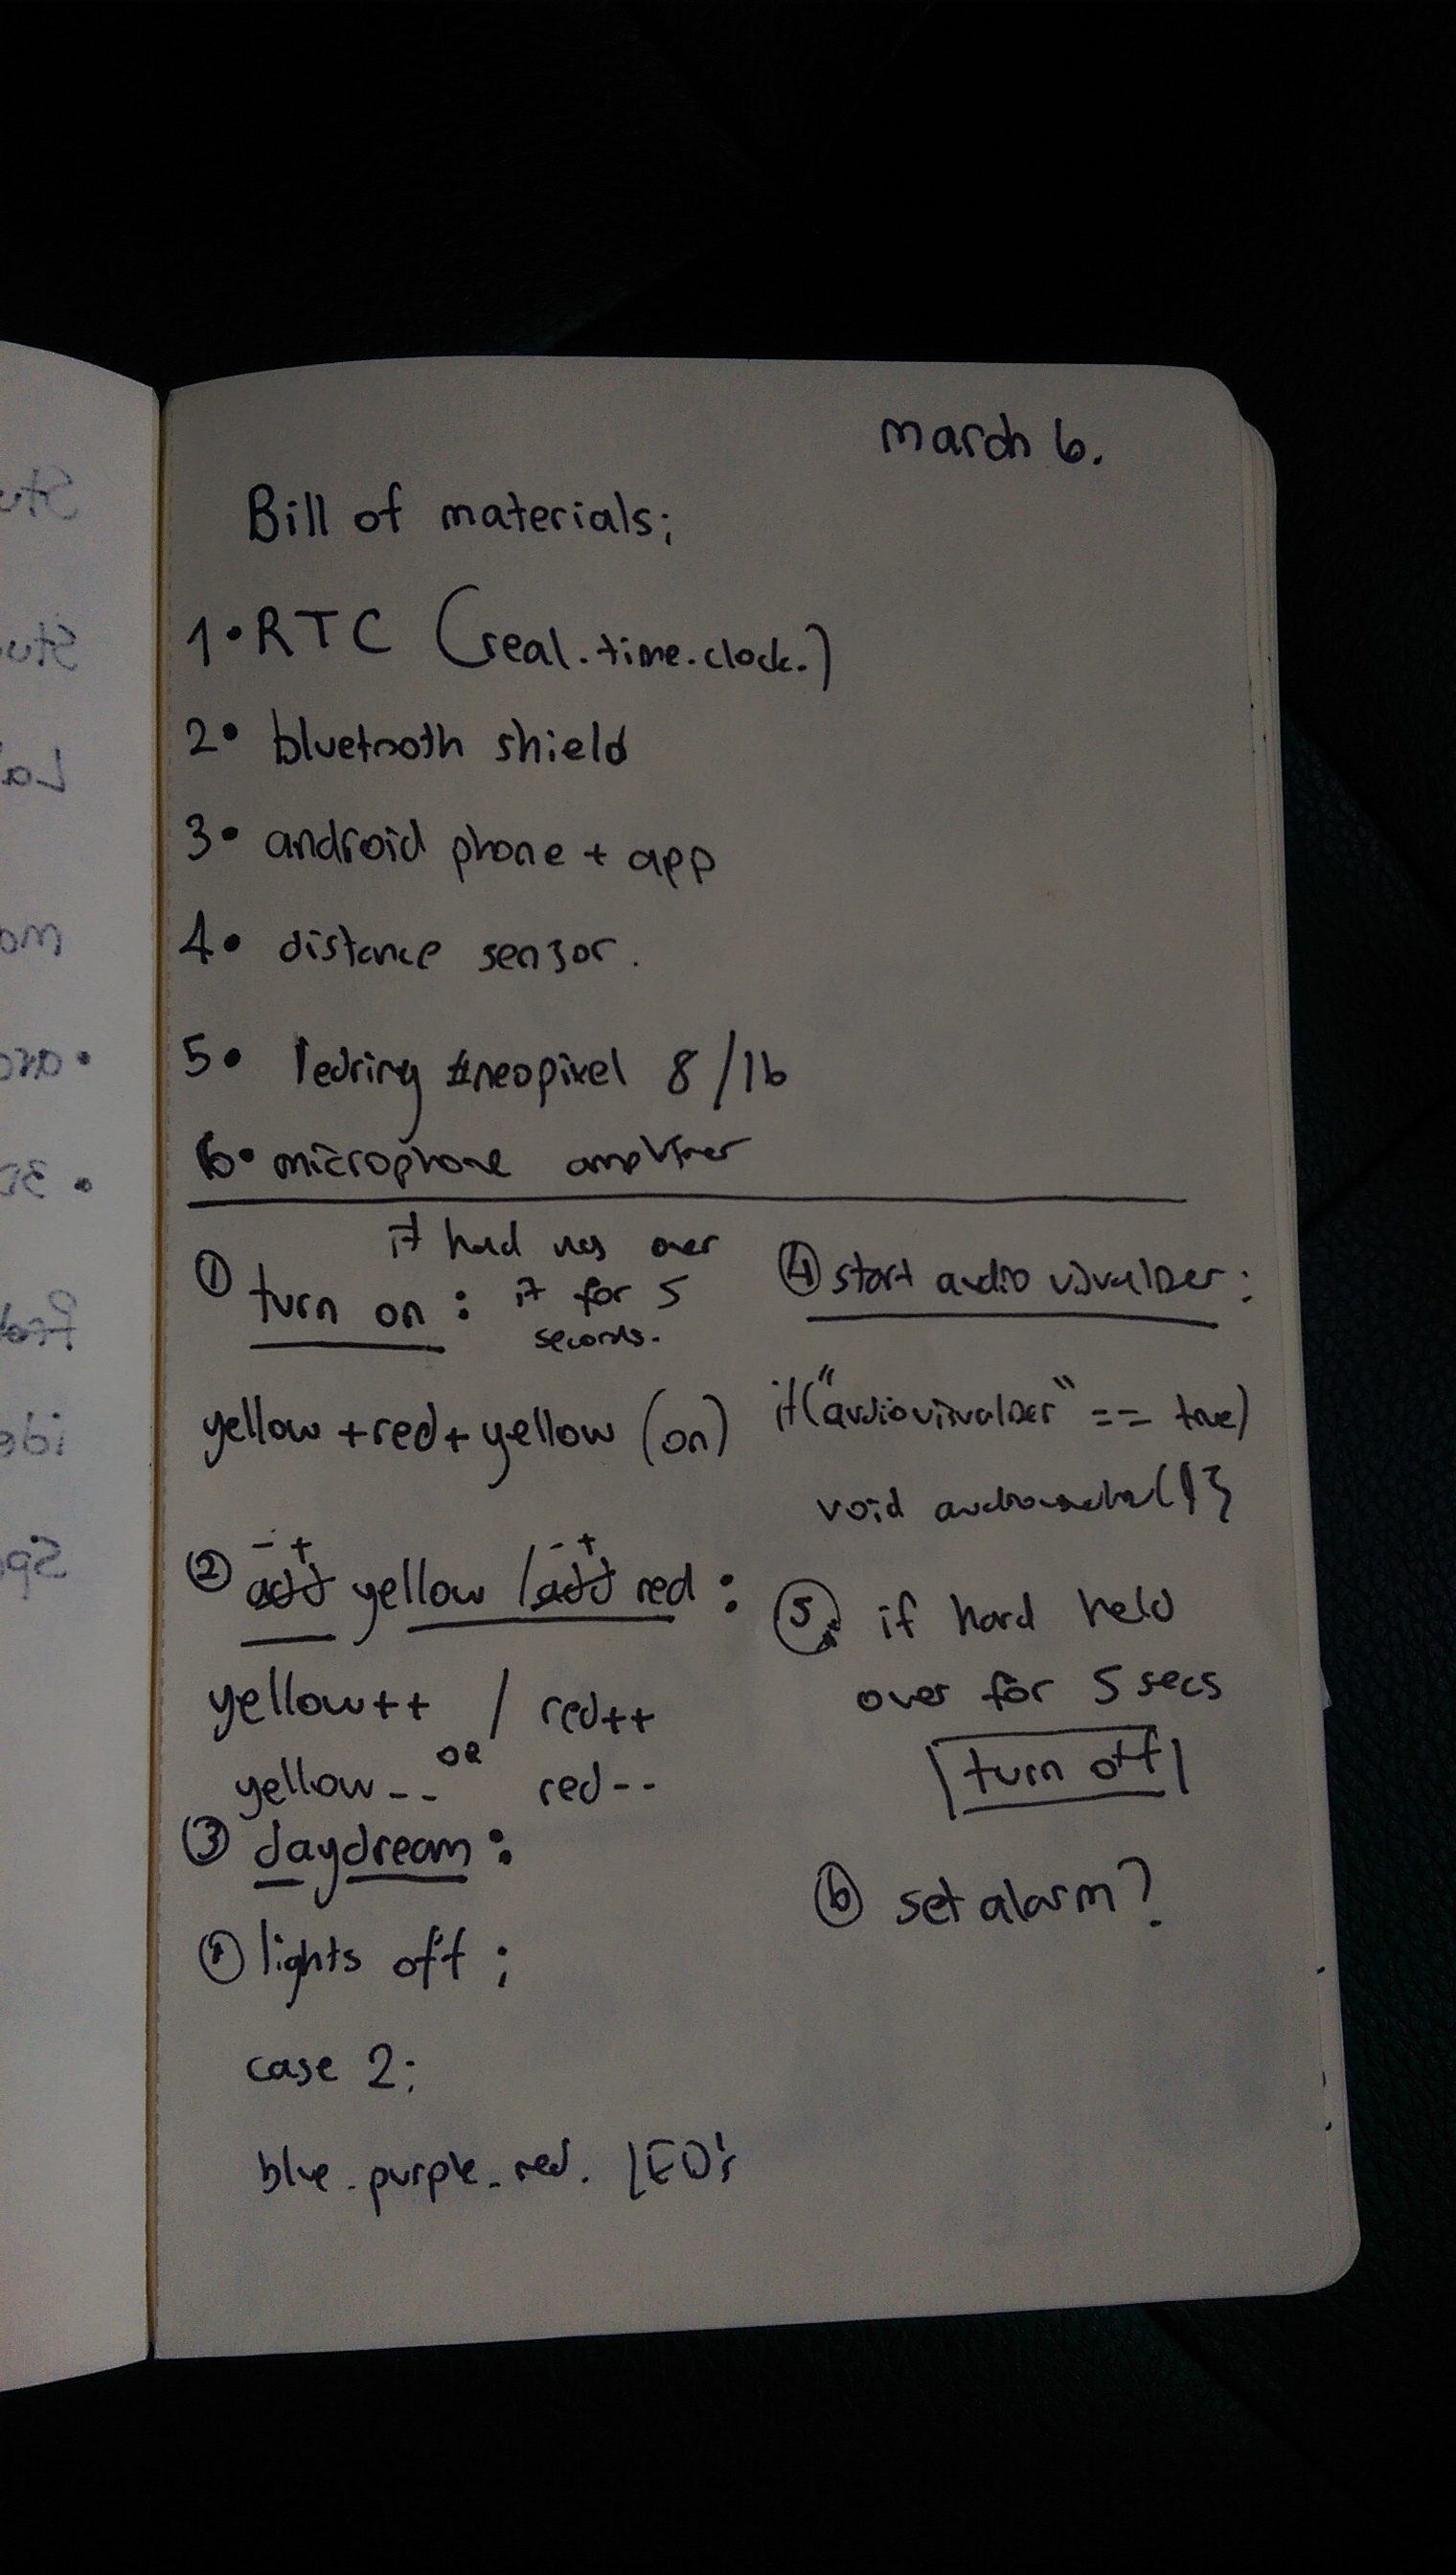 march 6.
Bill of materials;
1• RTC (real.time.clock.)
2• bluetooth shield
3• android phone + app
4• distance sensor.
5• ledring #neopixel 8/16
6• microphone amplifier
① turn on : if hand was over
it for 5
seconds.
yellow + red + yellow (on)
② - + yellow / - + red :
yellow++ / red++
yellow-- OR red--
③ daydream :
lights off ;
case 2;
blue - purple - red. LED's
④ start audio visualizer :
if("audiovisualizer" == true)
void
⑤ if hand held
over for 5 secs
turn off
⑥ set alarm?
Stu
Stu
La
mo
ide
Sp